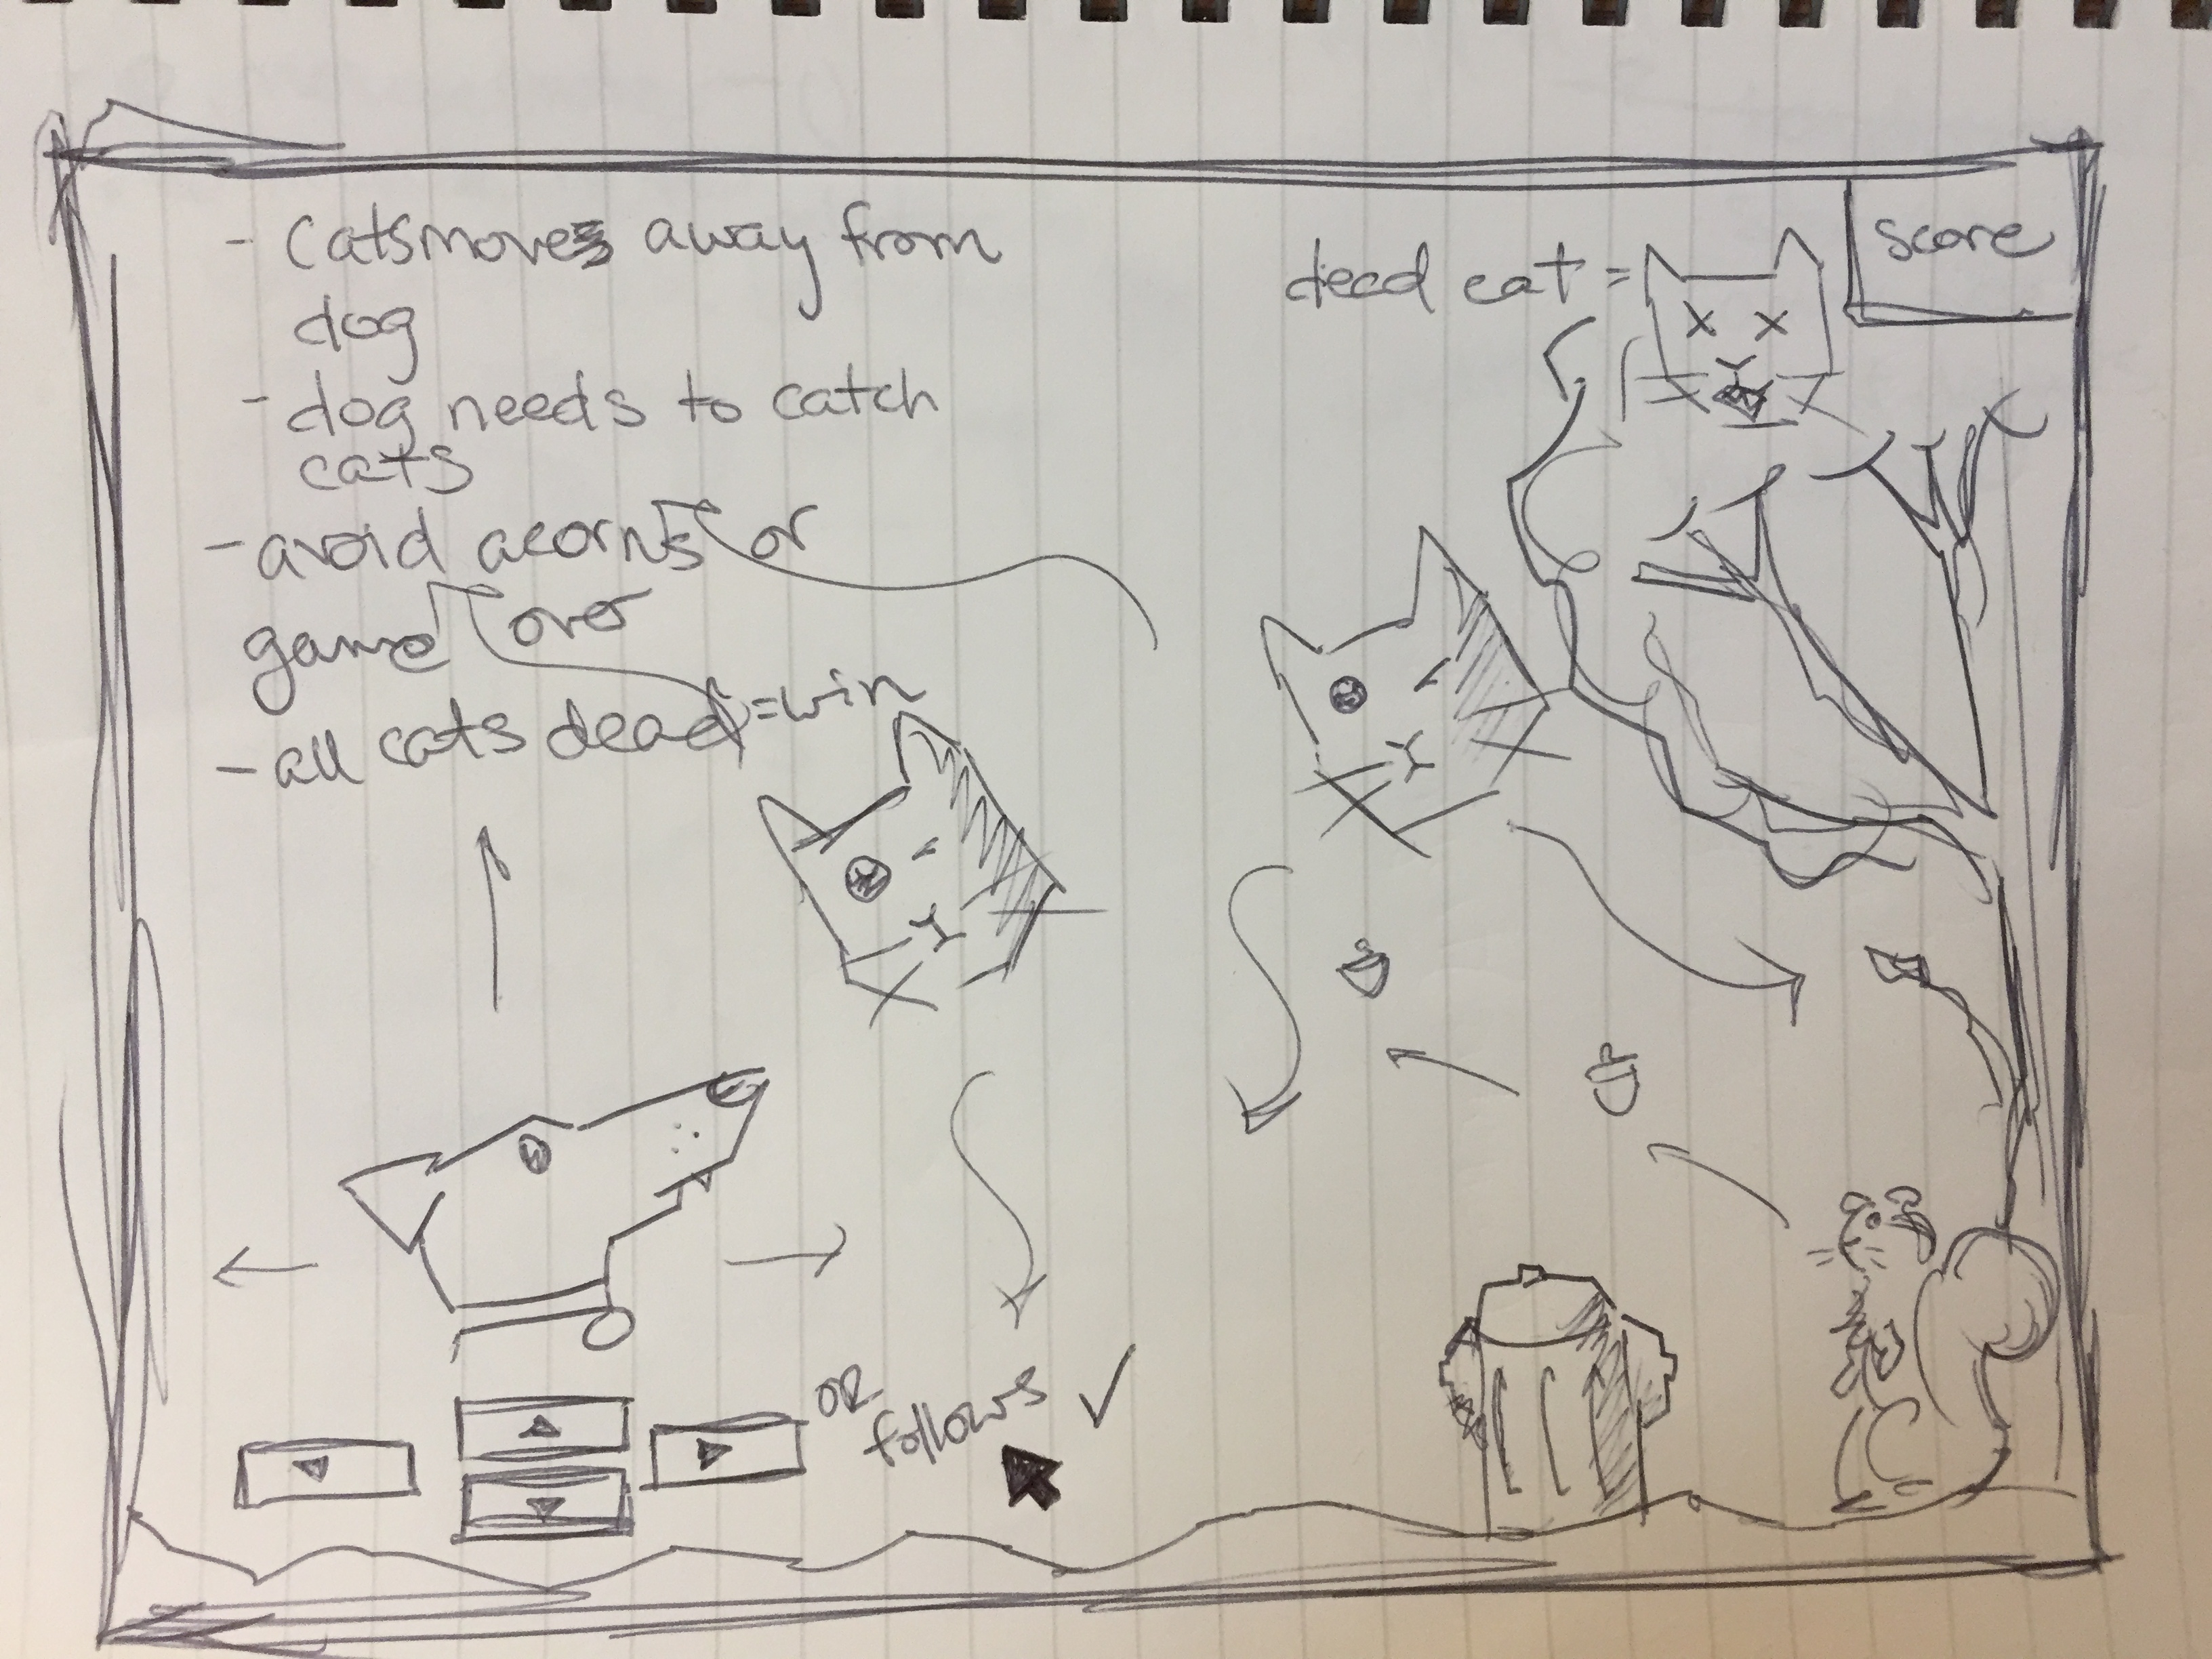 - Catsmoves away from
dog
- dog needs to catch
cats
- avoid acorns or
game over
- all cats dead = win
dead cat =
score
OR
follows